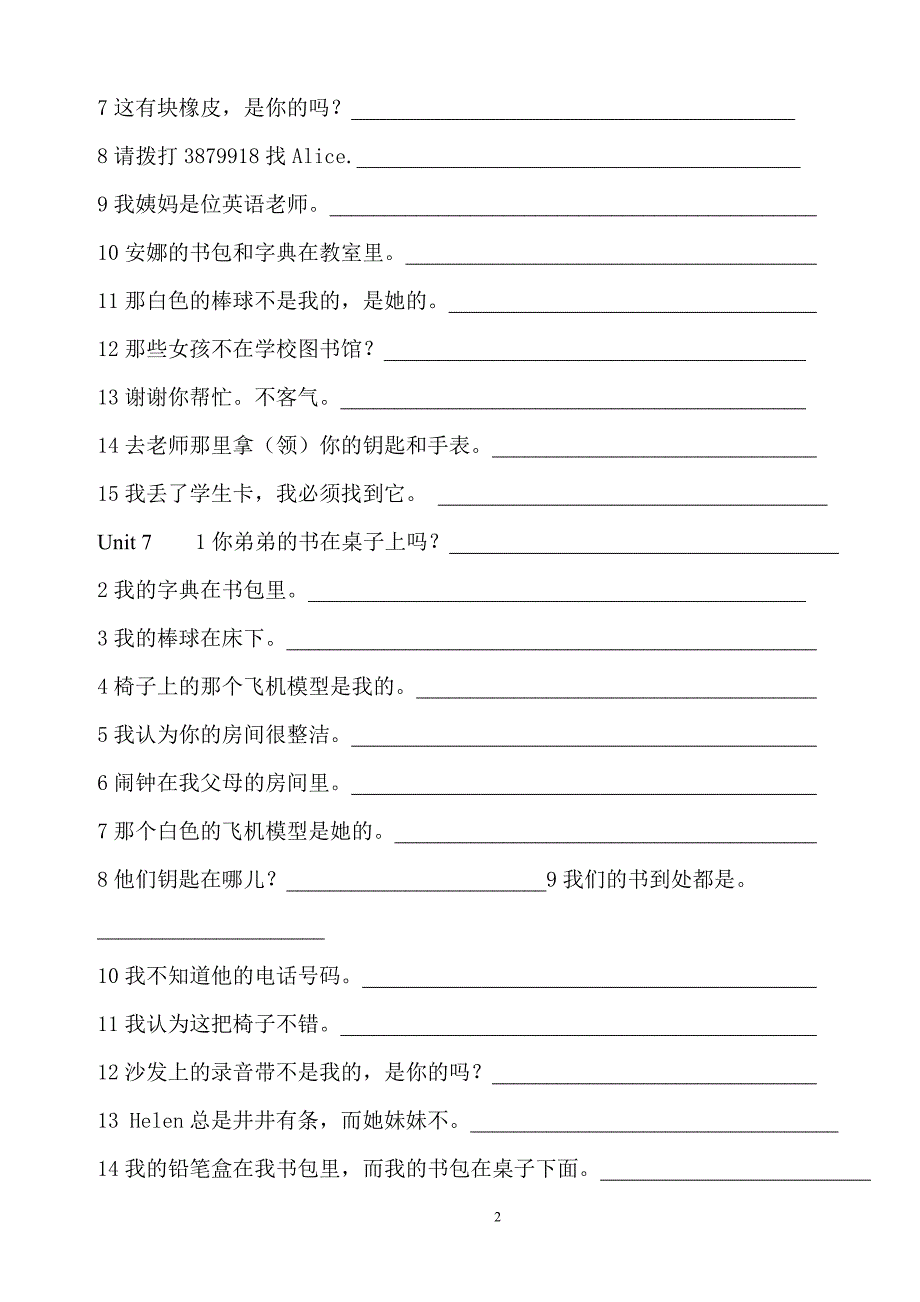 7 这有块橡皮，是你的吗？_________________________________________
8 请拨打 3879918 找 Alice._________________________________________
9 我姨妈是位英语老师。_____________________________________________
10 安娜的书包和字典在教室里。______________________________________
11 那白色的棒球不是我的，是她的。__________________________________
12 那些女孩不在学校图书馆？_______________________________________
13 谢谢你帮忙。不客气。___________________________________________
14 去老师那里拿（领）你的钥匙和手表。______________________________
15 我丢了学生卡，我必须找到它。 ____________________________________
Unit 7 1 你弟弟的书在桌子上吗？____________________________________
2 我的字典在书包里。______________________________________________
3 我的棒球在床下。_________________________________________________
4 椅子上的那个飞机模型是我的。_____________________________________
5 我认为你的房间很整洁。___________________________________________
6 闹钟在我父母的房间里。___________________________________________
7 那个白色的飞机模型是她的。_______________________________________
8 他们钥匙在哪儿？________________________9 我们的书到处都是。
_____________________
10 我不知道他的电话号码。__________________________________________
11 我认为这把椅子不错。____________________________________________
12 沙发上的录音带不是我的，是你的吗？______________________________
13 Helen 总是井井有条，而她妹妹不。__________________________________
14 我的铅笔盒在我书包里，而我的书包在桌子下面。_________________________
2